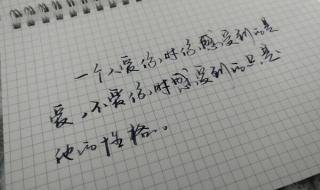 一个人爱你,时你感受到的是
爱,不爱你,时感受到的只是
他的性格。